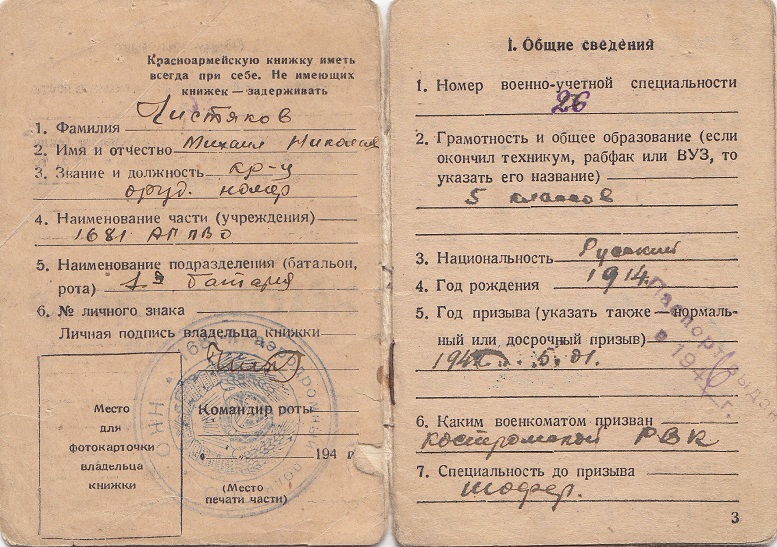 Красноармейскую книжку иметь
всегда при себе. Не имеющих
книжек — задерживать
1. Фамилия Чистяков
2. Имя и отчество Михаил
3. Звание и должность кр-ц
оруд. номер
4. Наименование части (учреждения)
1681 АП ПВО
5. Наименование подразделения (батальон,
рота) 1я батарея
6. № личного знака
Личная подпись владельца книжки
Место
для
фотокарточки
владельца
книжки
Командир роты
194 г.
(Место
печати части)
I. Общие сведения
1. Номер военно-учетной специальности
26
2. Грамотность и общее образование (если
окончил техникум, рабфак или ВУЗ, то
указать его название)
5 классов
3. Национальность Русский
4. Год рождения 1914
5. Год призыва (указать также — нормаль-
ный или досрочный призыв)
6. Каким военкоматом призван
Костромской РВК
7. Специальность до призыва
шофер.
3
Паспорт выдан
в 194 г.